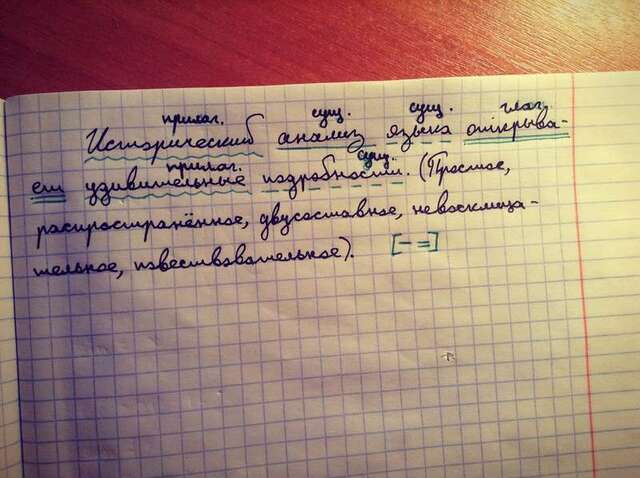 прилаг. сущ. сущ. глаг.
Исторический анализ языка открыва-
прилаг. сущ.
ет удивительные подробности. (Простое,
распространённое, двусоставное, невосклица-
тельное, повествовательное). [— =]